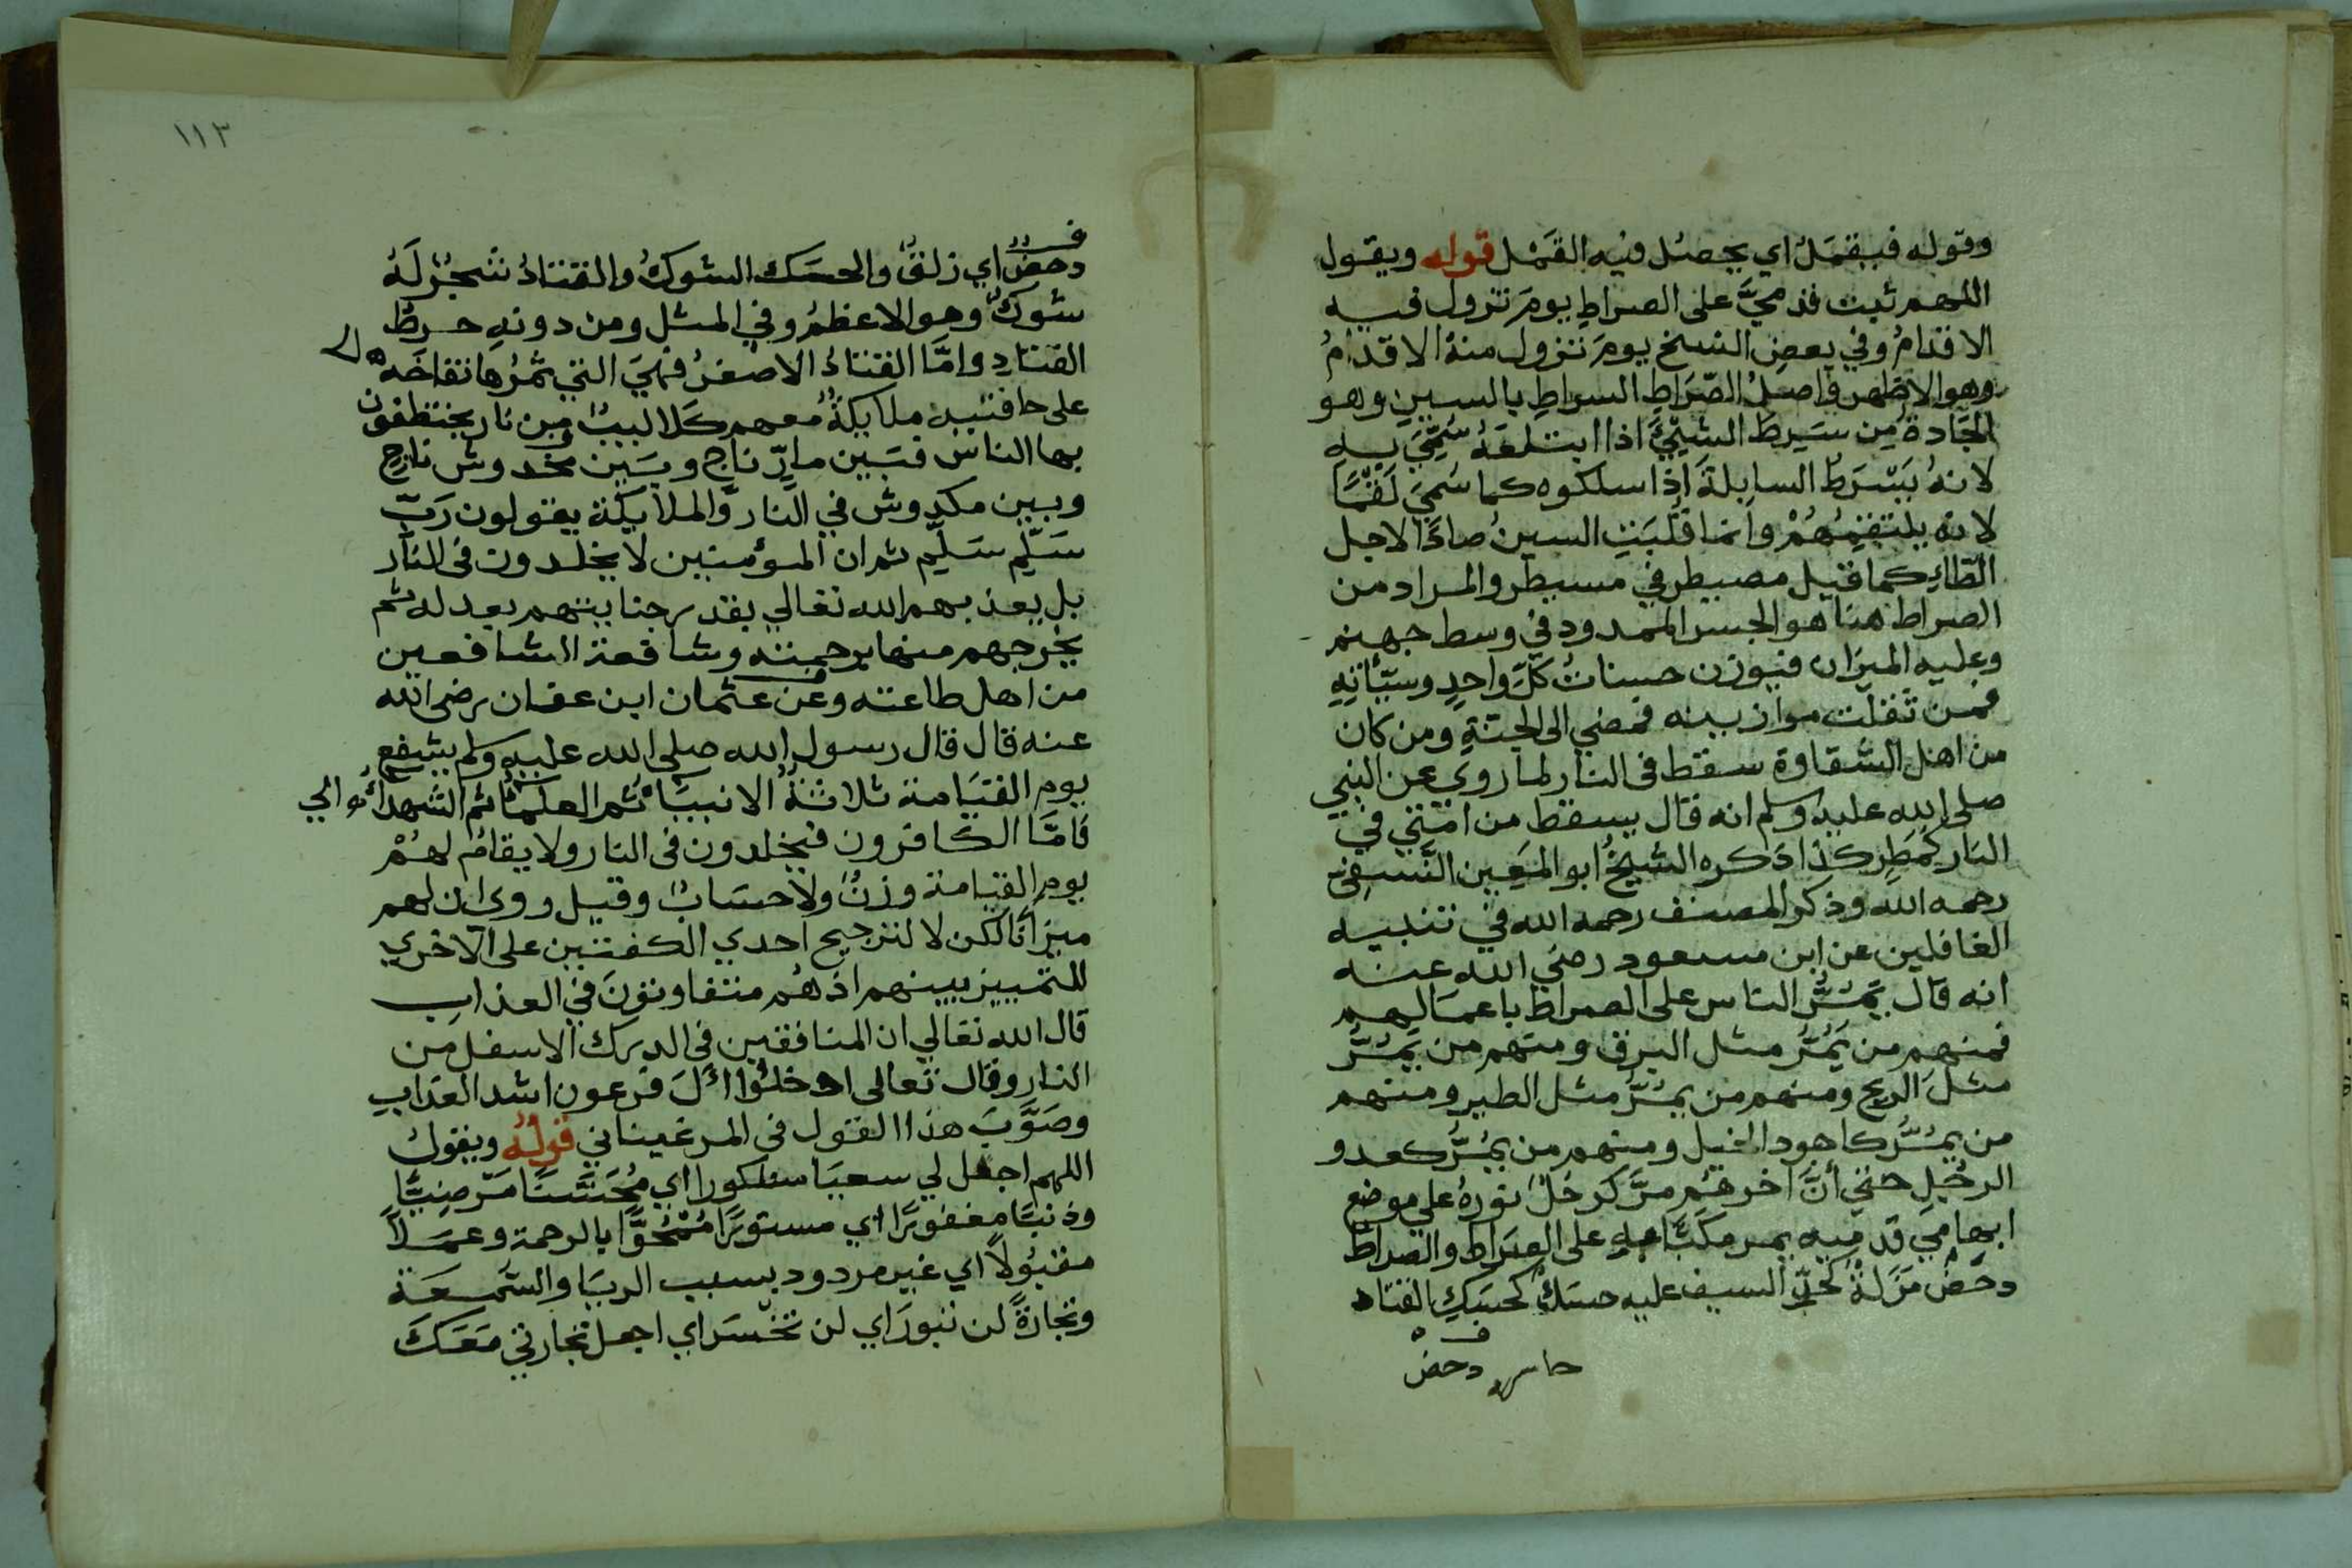 وقوله فيقمل اي يحصل فيه القمل قوله ويقول
اللهم ثبت قدميَّ على الصراط يومَ تزول فيه
الاقدامُ وفي بعض النسخ يومَ تزول منهُ الاقدامُ
وهو الاظهر واصلُ الصّراطِ السراط بالسين وهو
الجادةُ من سَرِط الشيئَ اذا ابتلعَهُ سُمِّيَ به
لانهُ يَسْرَط السابلةَ اذا سلكوه كما سُمِّيَ لَقَمًا
لانه يلتقمُهُمْ وانما قُلبَتِ السينُ صادًا لاجل
الطّاءِ كما قيل مصيطر في مسيطر والمراد من
الصراط هنا هو الجسر الممدود في وسط جهنم
وعليه الميزان فيوزن حسناتُ كلِّ واحدٍ وسيّأتِهِ
فمن ثقلت موازينه فمضي الى الجنّةِ ومن كان
من اهل الشقاوة سقط فى النار لما روي عن النبي
صلى الله عليه وسلم انه قال يسقط من امّتي في
النار كمَطَرٍ كذا ذكره الشيخُ ابو المعين النَّسفي
رحمه الله وذكر المصنف رحمه الله في تنبيه
الغافلين عن ابن مسعود رضي الله عنه
انه قال يَمُرُّ الناس على الصراط باعمالهم
فمنهم من يَمُرُّ مثل البرق ومنهم من يَمُرُّ
مثلَ الريح ومنهم من يمُرُّ مثل الطير ومنهم
من يمُرُّ كاجود الخيل ومنهم من يمُرُّ كعدو
الرجُلِ حتي أنَّ اخرهُم مرَّ كرجُلٍ نورهُ على موضع
ابهامي قدميه يمر مكبّا به على الصراط والصراط
دحَضٌ مَزَلةٌ كحدِّ السيف عليه حسكٌ كحسكِ القتاد
دحض
١١٣
دحضٌ اي زلقٌ والحسَك الشوكُ والقتادُ شجرٌ لَهُ
شوكٌ وهو الاعظمُ وفي المثل ومن دونهِ خرطُ
القتادِ وامَّا القتادُ الاصغرُ فهيَ التي ثمرُها نفاخَه
على حافتيه ملايكةٌ معهم كلاليبُ من نار يختطفون
بها الناس فبَين مارّ ناجٍ وبين مخدوش ناجٍ
وبين مكدوش في النار والملايكة يقولون رَبِّ
سَلِّم سَلِّم ثم ان المؤمنين لا يخلدون فى النار
بل يعذبهم الله تعالي بقدر جنايتهم بعدله ثم
يخرجهم منها برحمته وشافعة الشافعين
من اهل طاعته وعن عثمان ابن عفان رضى الله
عنه قال قال رسول الله صلى الله عليه وسلم يشفع
يوم القيامة ثلاثةُ الانبياءُ ثم العلماءُ ثم الشهداءُ
فامّا الكافرون فيخلدون فى النار ولا يقامُ لهُمْ
يوم القيامة وزنٌ ولا حسابٌ وقيل روى ان لهم
ميزانًا لكن لا لترجيح احدي الكفتين على الاخري
للتمييز بينهم اذ هُم متفاوتونَ في العذاب
قال الله تعالي ان المنافقين فى الدرك الاسفل من
النار وقال تعالى ادخلُوا الَ فرعون اشد العذاب
وصَوَّبَ هذا القول فى المرغيناني قولُه ويقول
اللهم اجعل لي سعيا مشكورا اي مُحَسَّنًا مَرضِيًّا
وذنبًا مغفورًا اي مستورًا مَمْحُوًّا بالرحمة وعملًا
مقبُولًا اي غير مردود بسبب الريا والسّمعة
وتجارةً لن تبورَ اي لن تخسَر اي اجعل تجارتي مَعَكَ